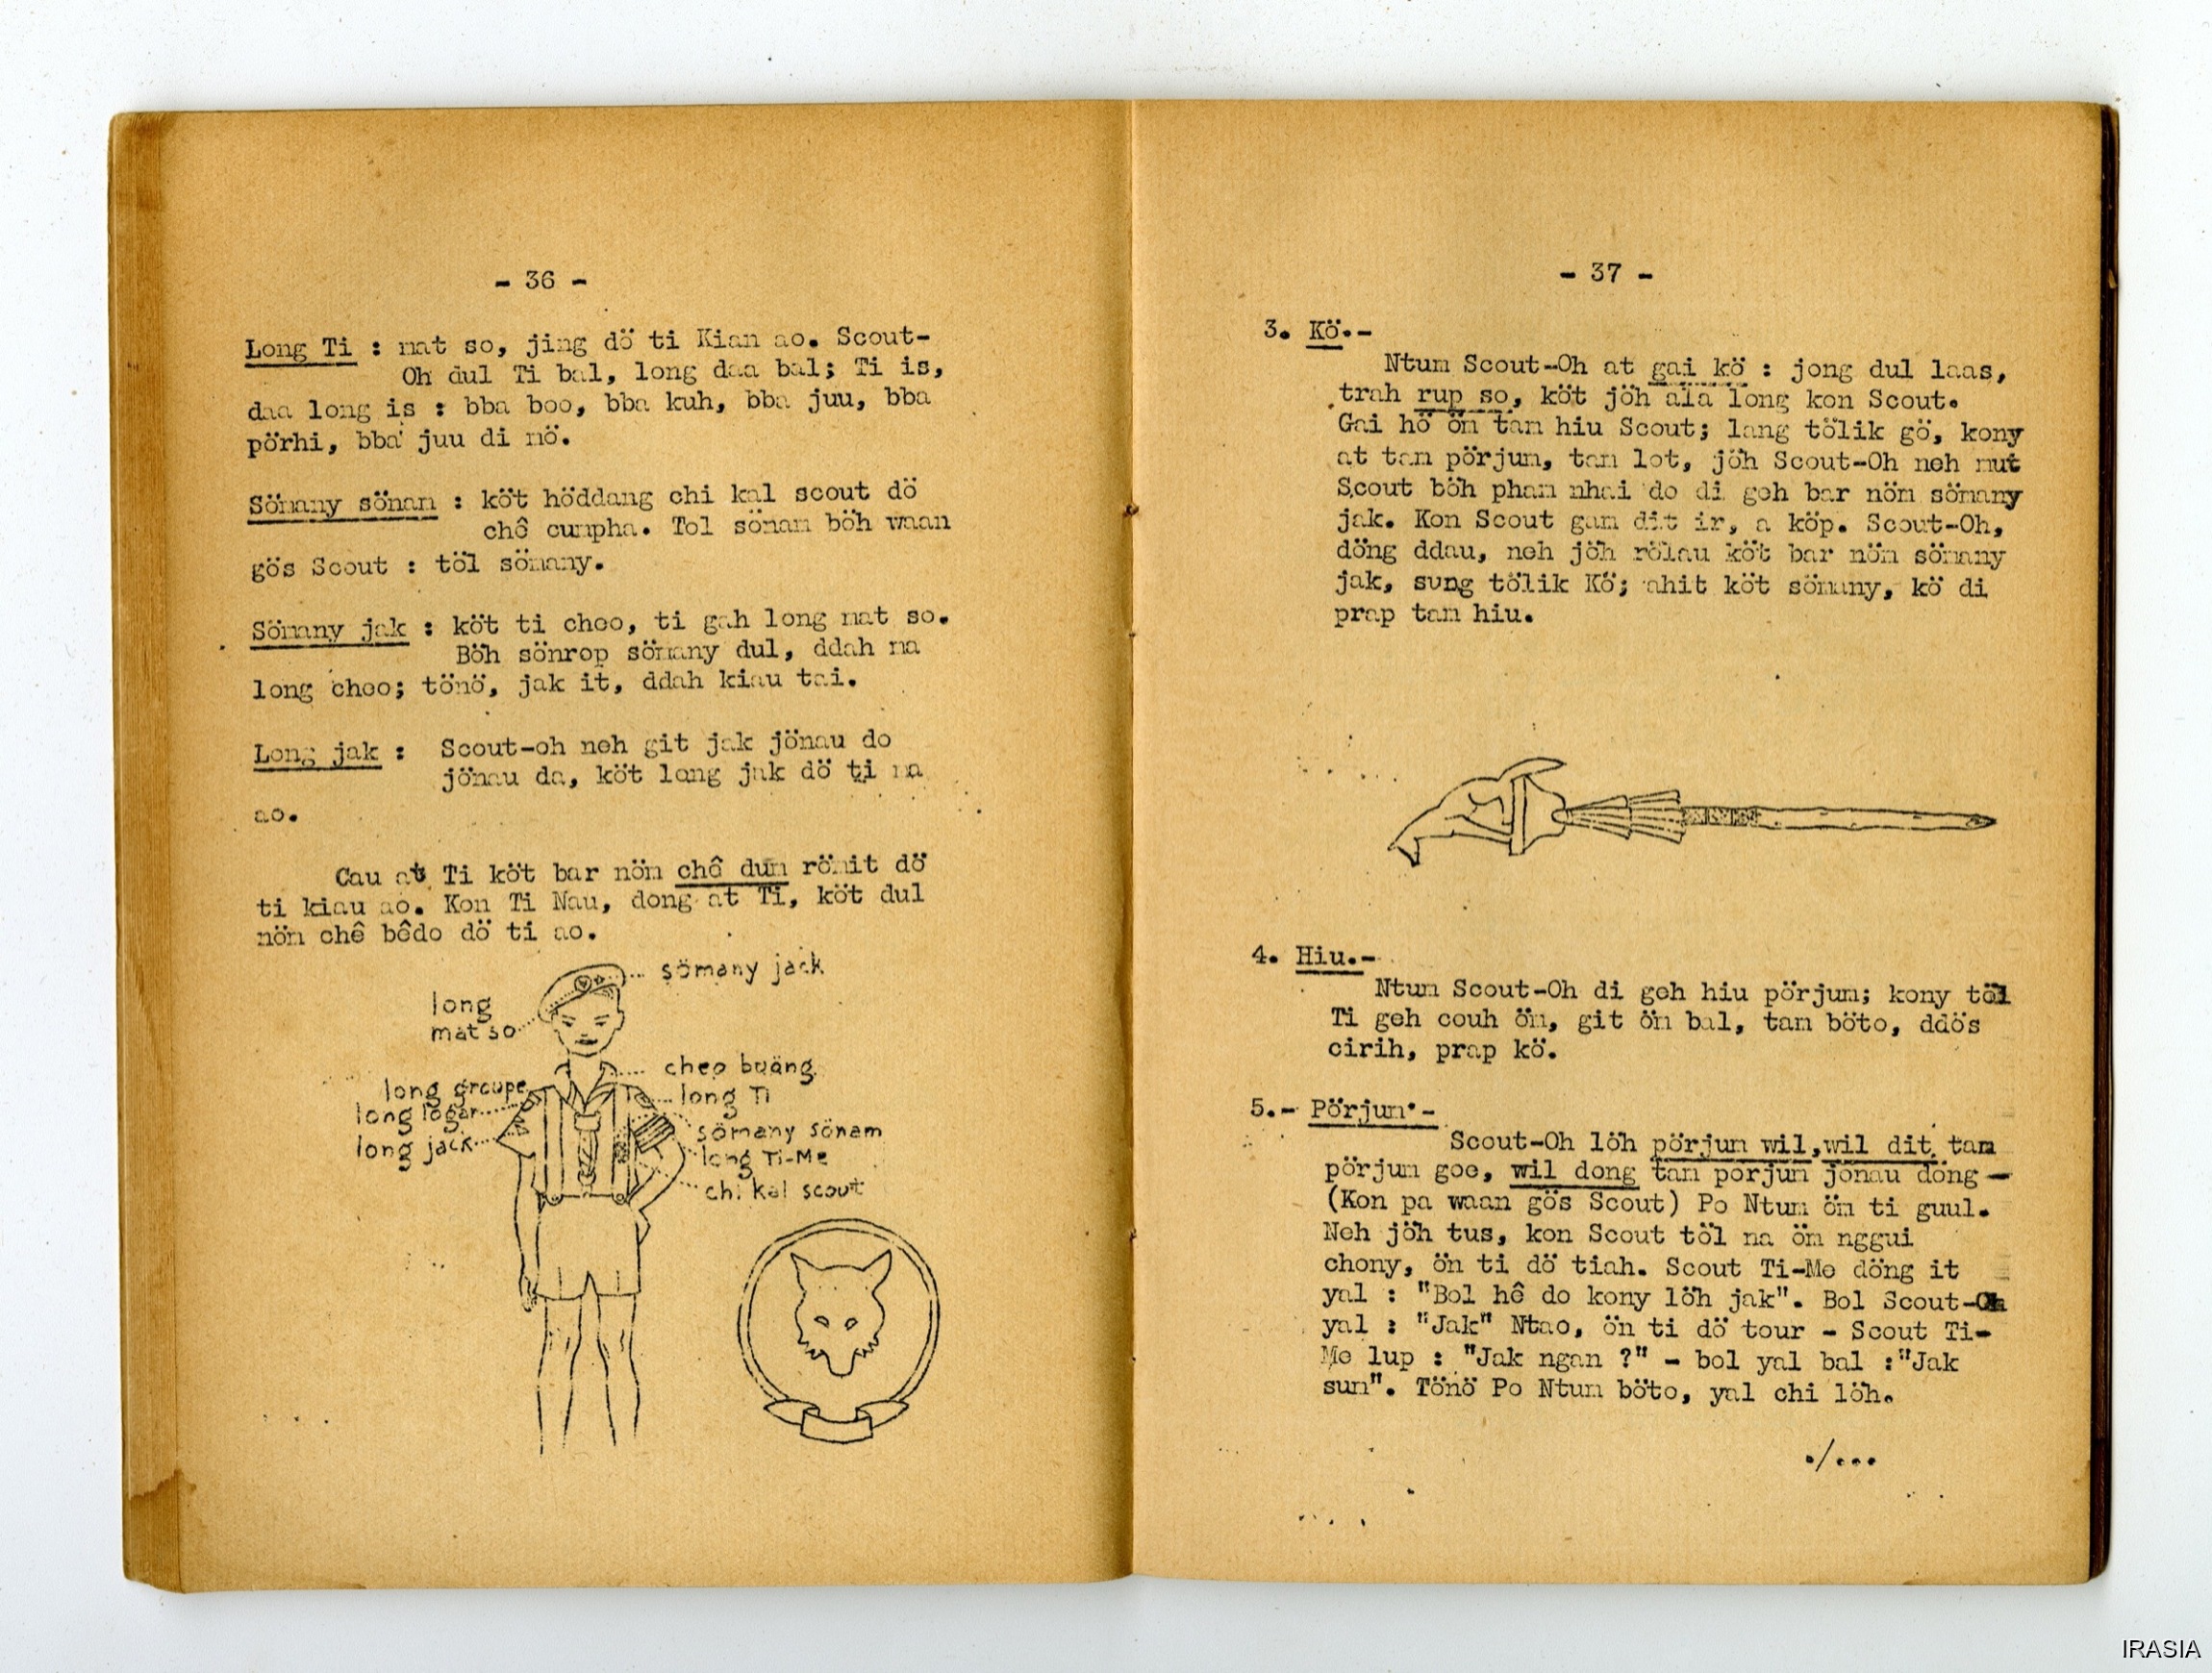 - 36 -
Long Ti : mat so, jing dö ti Kian ao. Scout-
Oh dul Ti bal, long daa bal; Ti is,
daa long is : bba boo, bba kuh, bba juu, bba
pörhi, bba juu di nö.
Sömany sönam : köt höddang chi kal scout dö
chê cumpha. Tol sönam böh waan
gös Scout : töl sömany.
Sömany jak : köt ti choo, ti gah long mat so.
Böh sönrop sömany dul, ddah na
long choo; tönö, jak it, ddah kiau tai.
Long jak : Scout-oh neh git jak jönau do
jönau da, köt long jak dö ti ma
ao.
Cau at Ti köt bar nöm chê dum römit dö
ti kiau ao. Kon Ti Nau, dong at Ti, köt dul
nöm chê bêdo dö ti ao.
sömany jack
long
mat so
cheo buäng
long groupe
long Ti
long lögar
sömany sönam
long jack
long Ti-Me
chi kal scout
- 37 -
3. Kö.-
Ntum Scout-Oh at gai kö : jong dul laas,
trah rup so, köt jöh ala long kon Scout.
Gai hö ön tam hiu Scout; lang tölik gö, kony
at tam pörjum, tam lot, jöh Scout-Oh neh mut
Scout böh phan nhai do di geh bar nöm sömany
jak. Kon Scout gam dit ir, a köp. Scout-Oh,
döng ddau, neh jöh rölau köt bar nöm sömany
jak, sung tölik Kö; ahit köt sömany, kö di
prap tam hiu.
4. Hiu.-
Ntum Scout-Oh di geh hiu pörjum; kony töl
Ti geh couh ön, git ön bal, tam böto, ddös
cirih, prap kö.
5.- Pörjum.-
Scout-Oh löh pörjum wil, wil dit tam
pörjum goe, wil dong tam pörjum jönau döng —
(Kon pa waan gös Scout) Po Ntum ön ti guul.
Neh jöh tus, kon Scout töl na öm nggui
chony, ön ti dö tiah. Scout Ti-Me döng it
yal : "Bol hê do kony löh jak". Bol Scout-Oh
yal : "Jak" Ntao, ön ti dö tour - Scout Ti-
Me lup : "Jak ngan ?" - bol yal bal :"Jak
sum". Tönö Po Ntum böto, yal chi löh.
./...
IRASIA